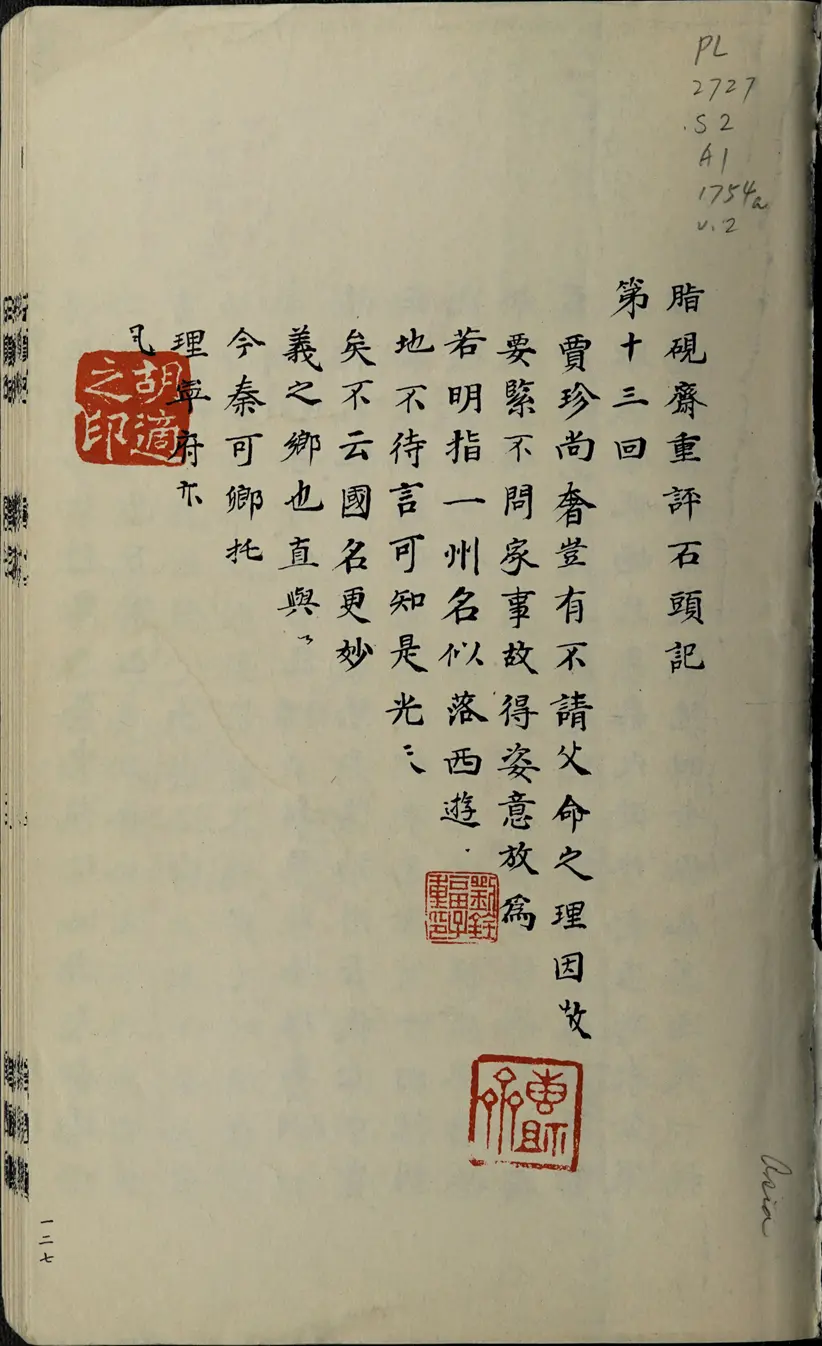 PL
2727
.S2
A1
1754a
v.2
脂硯齋重評石頭記
第十三回
賈珍尚奢豈有不請父命之理因敀
要緊不問家事故得姿意放爲
若明指一州名似落西遊
地不待言可知是光〻
矣不云國名更妙
義之鄉也直與〻
今秦可卿托
理寧府亦
凡
胡適之印
劉銓福子重印
Asia
一二七